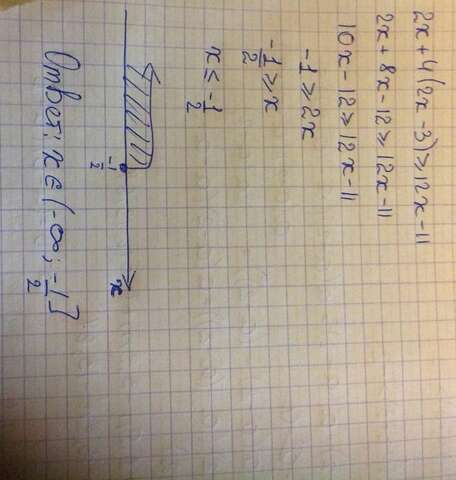 2x + 4(2x - 3) ⩾ 12x - 11
2x + 8x - 12 ⩾ 12x - 11
10x - 12 ⩾ 12x - 11
-1 ⩾ 2x
-1/2 ⩾ x
x ≤ -1/2
-1/2
x
Ответ: x ∈ (-∞; -1/2]